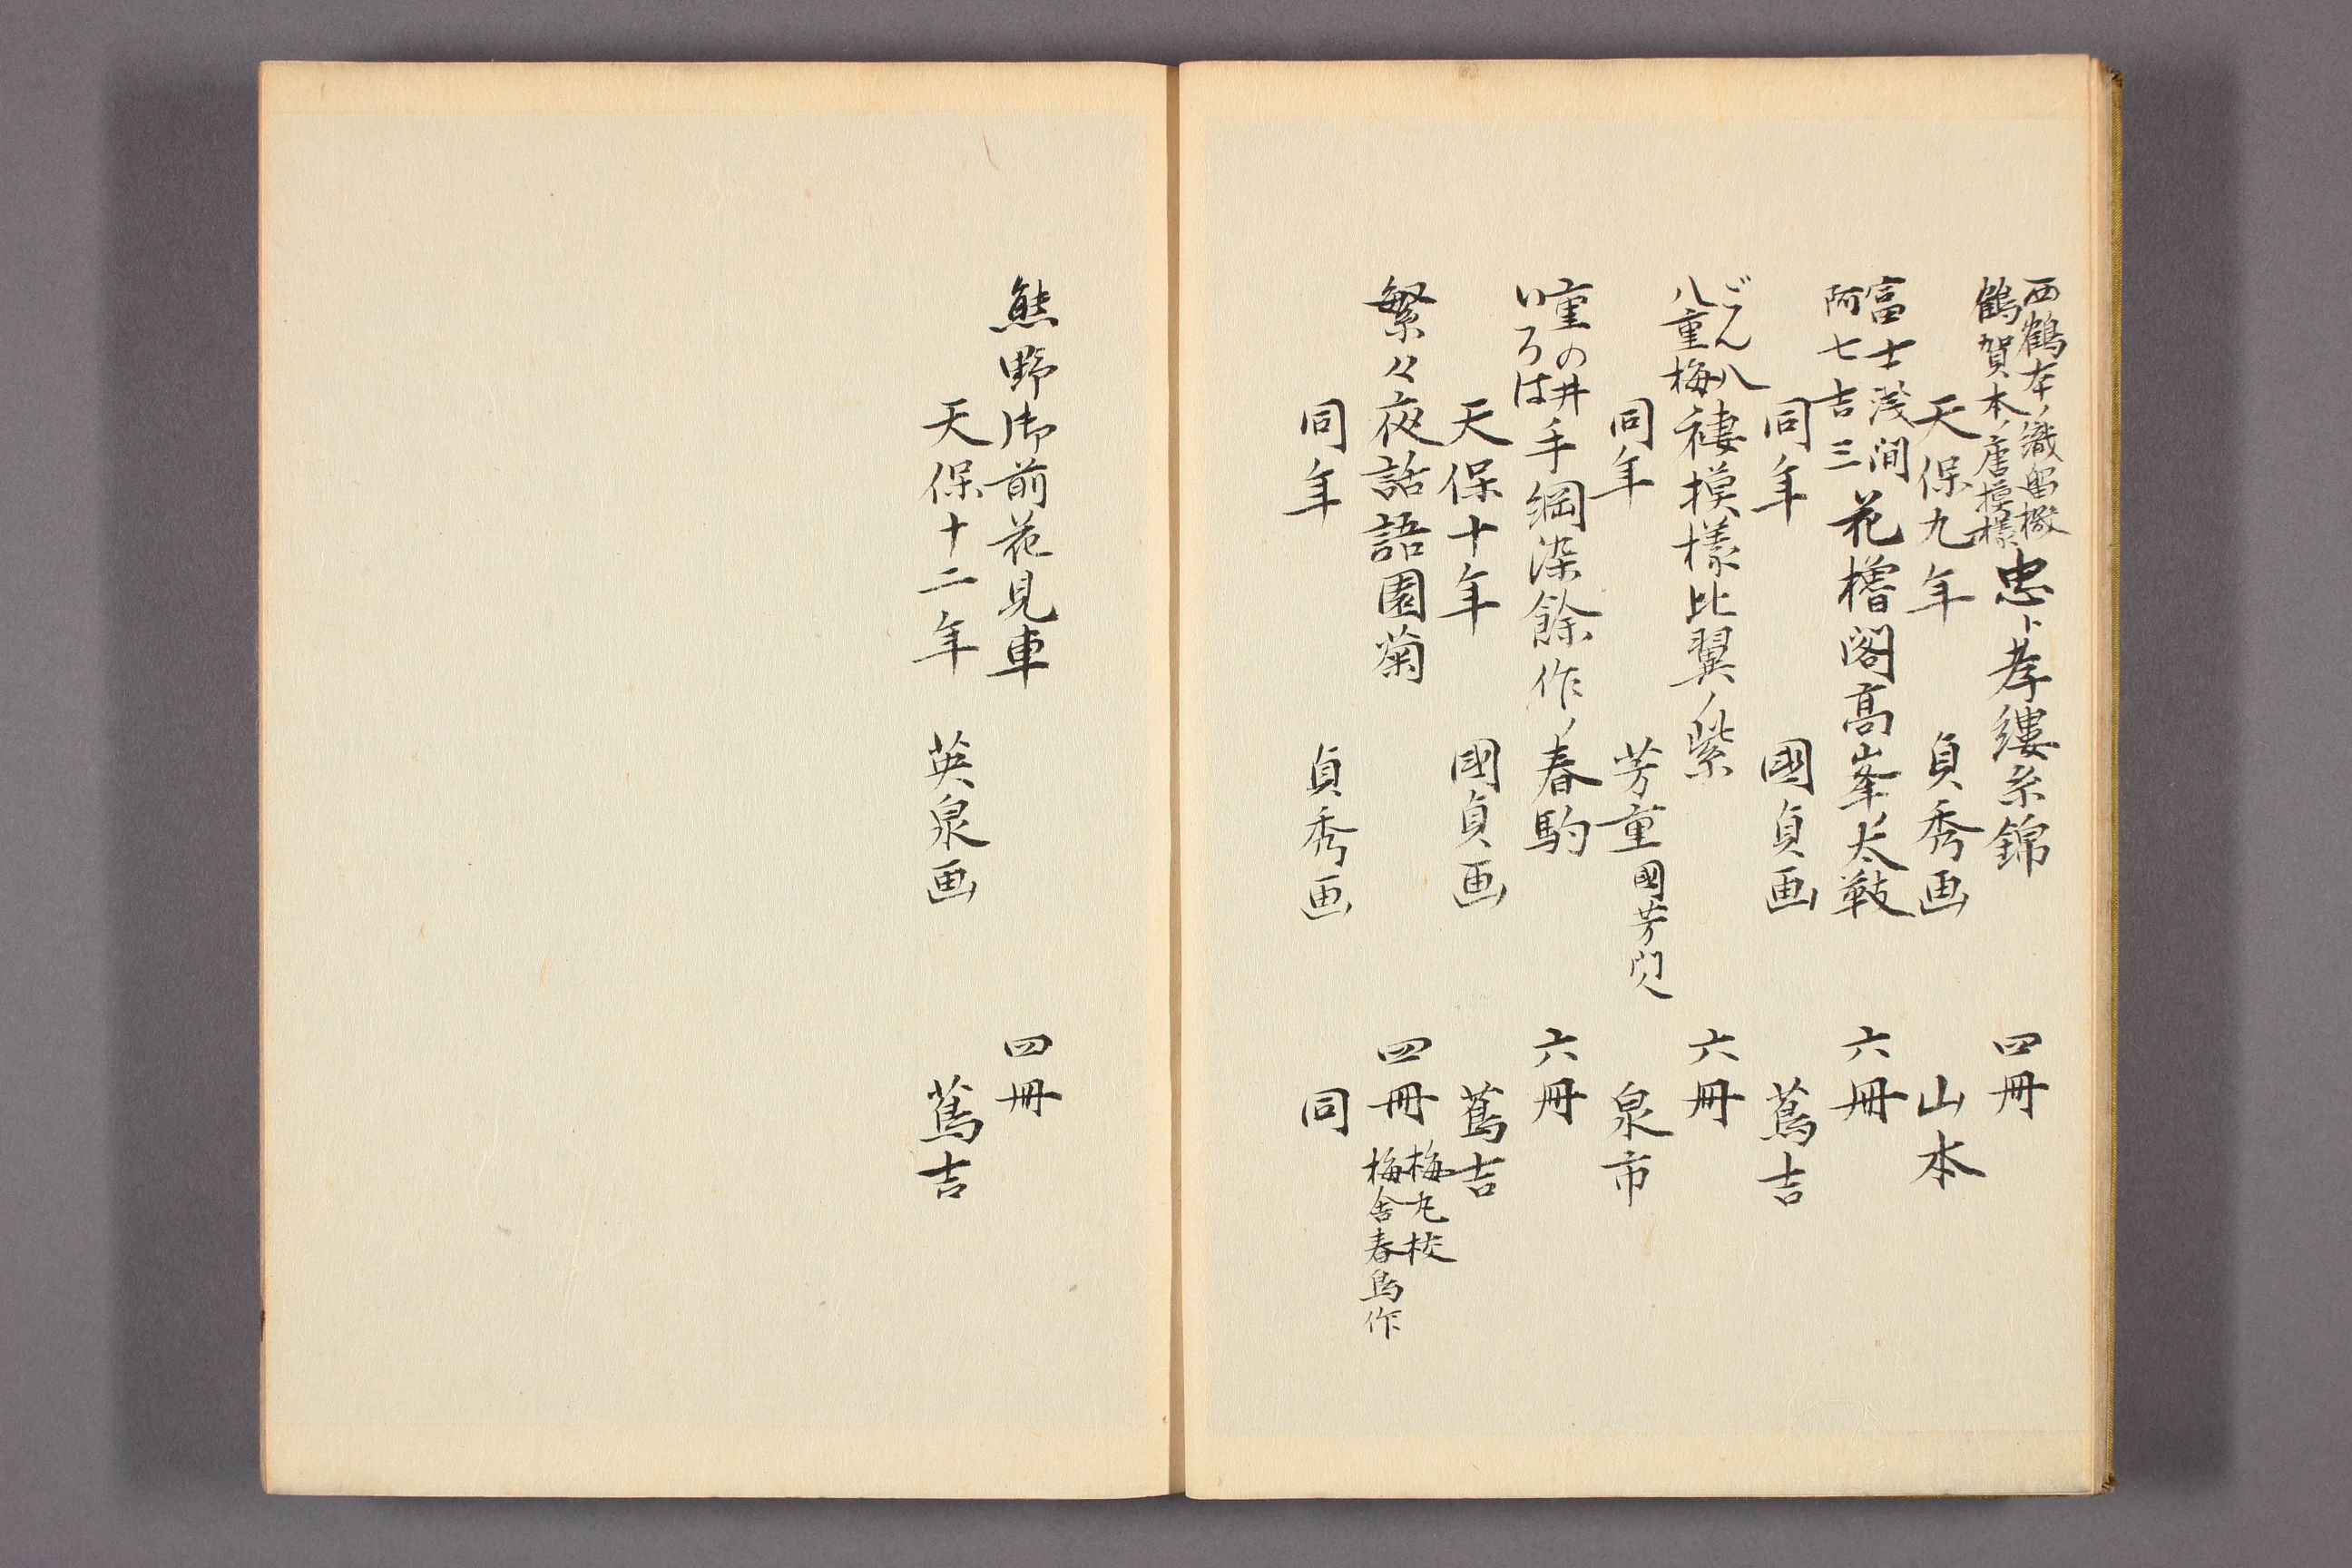 西鶴本ノ織留
鶴賀本ノ唐模様
忠ト孝縷糸錦 四冊
天保九年 貞秀画 山本
富士浅間
阿七吉三
花櫓閣高峯太鼓 六冊
同年 國貞画 蔦吉
ごん八
八重梅
褄模様比翼ノ紫 六冊
同年 芳重 國芳門人 泉市
重の井
いろは
手綱染餘作ノ春駒 六冊
天保十年 國貞画 蔦吉
繁々夜話語園菊 四冊
梅丸校
梅舎春鳥作
同年 貞秀画 同
熊野御前花見車 四冊
天保十二年 英泉画 蔦吉